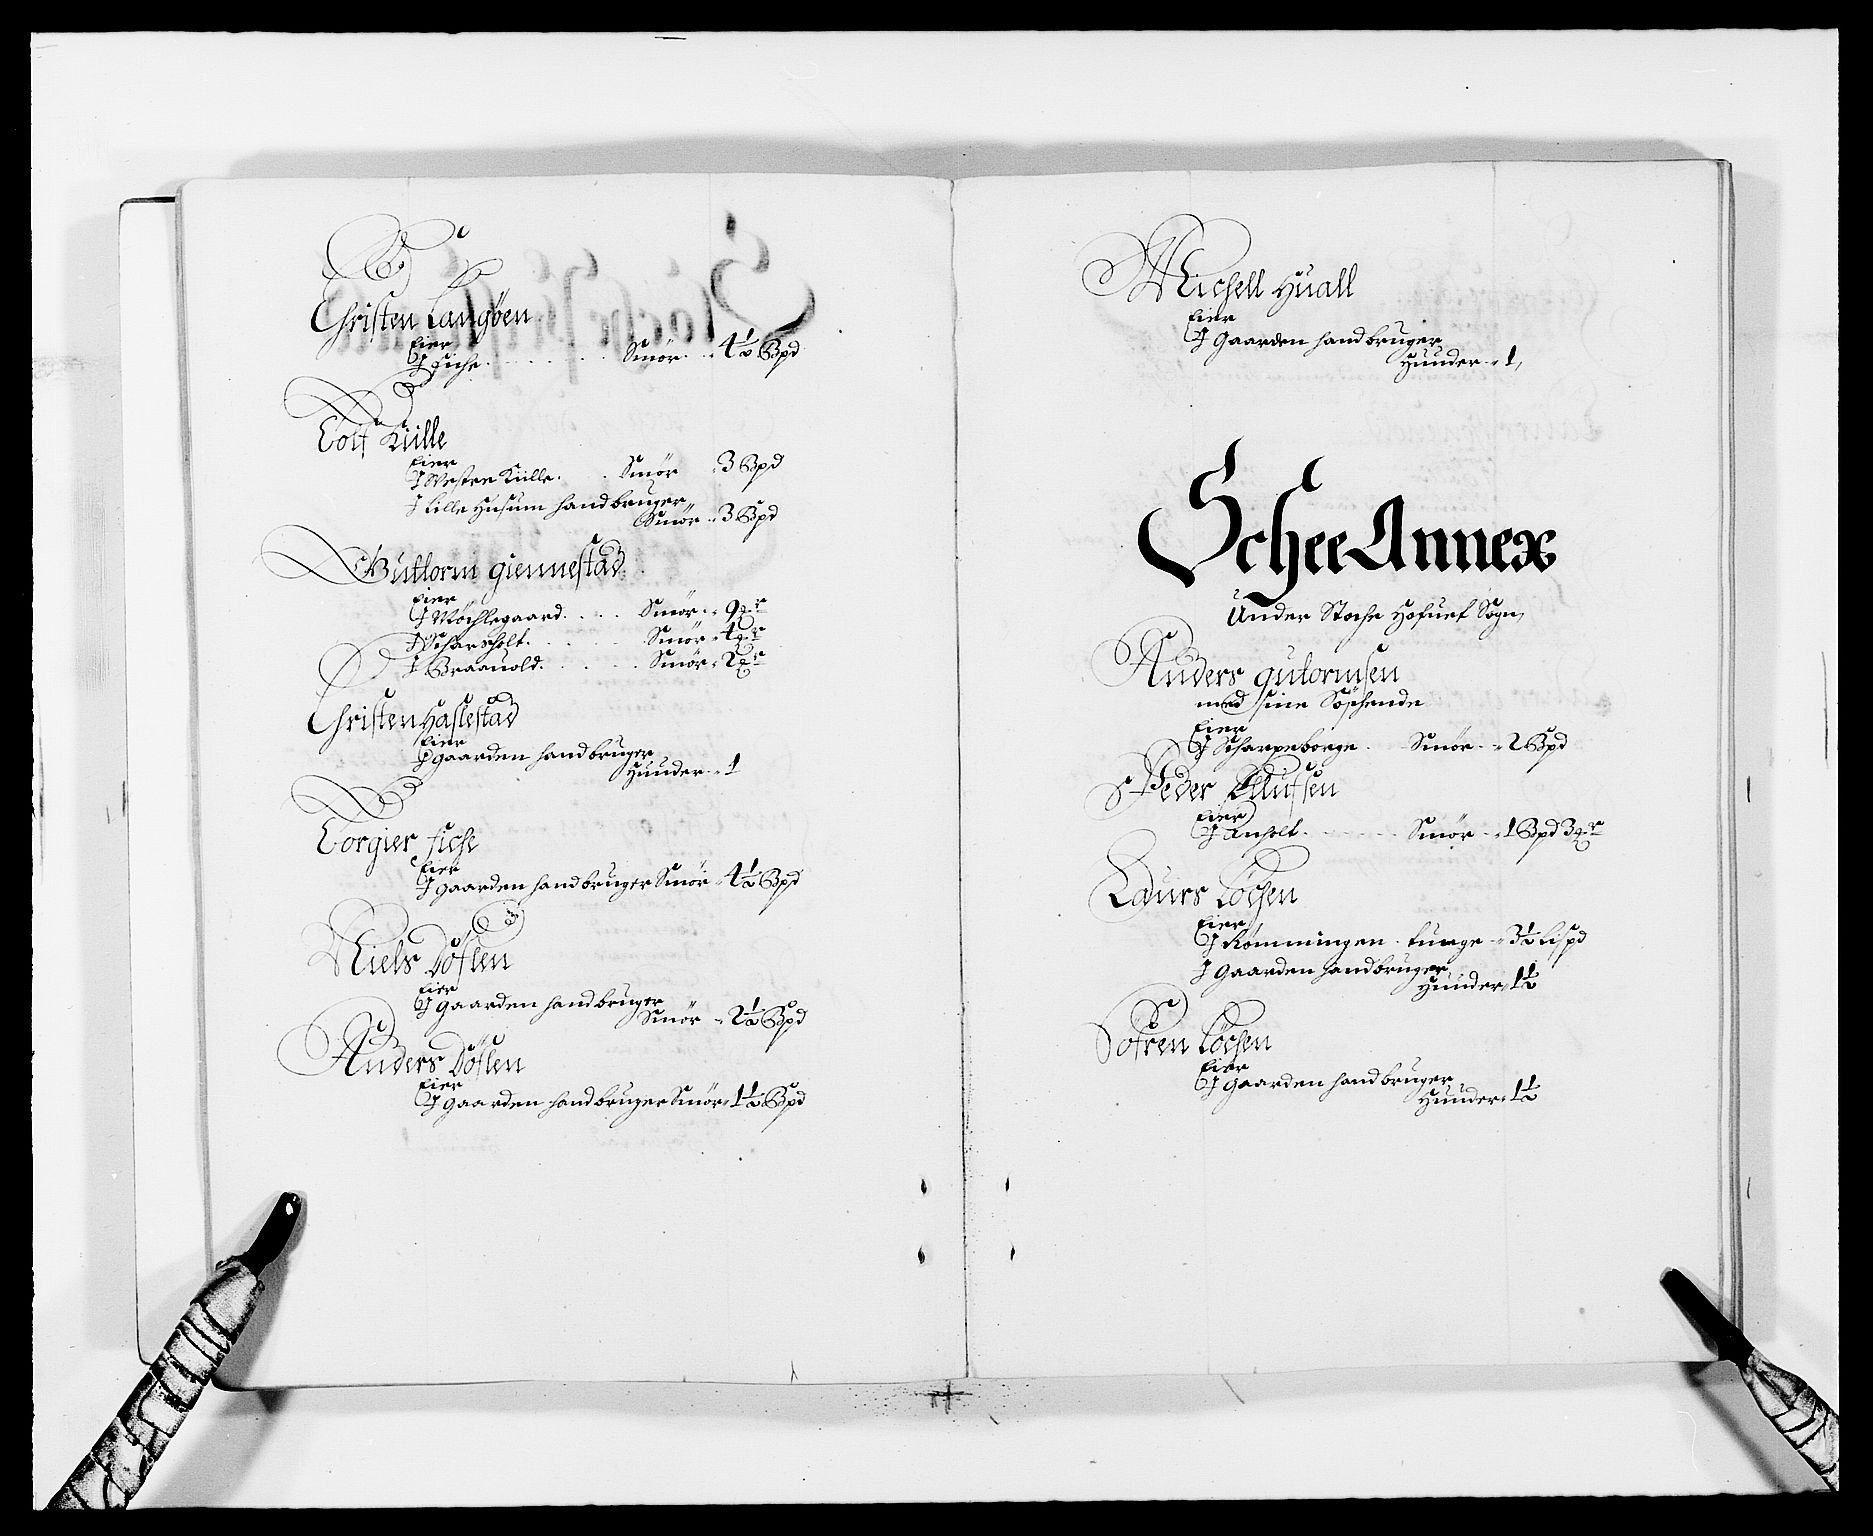 Christen Langöen
Eier
J Fiche . . . . . . . Smör . . 4½ Bpd
Tolf Kiille
Eier
J Westre Kiille . . Smör „ 3 Bpd
J Lille Husum hand bruger
Smör „ 3 Bpd
Guttorm giennestad
Eier
J Möchlegaard . . . . Smör „ 9 qr
J Scharsholt . . . . . Smör „ 4 qr
J Braauold . . . . . . Smör „ 2 qr
Christen Haslestad
Eier
J gaarden hand bruger
Huuder „ 1
Torgier Fiche
Eier
J gaarden hand bruger Smör „ 4½ Bpd
Niels Döflen
Eier
J gaarden hand bruger
Smör „ 2½ Bpd
Anders Döflen
Eier
J gaarden hand bruger Smör „ 1½ Bpd
Michell Huall
Eier
J gaarden hand bruger
Huuder „ 1,
Schee Annex
Under Stoche Hofuet Sogn,
Anders gutormsen
med sine Söschende
Eier
J Scharpeborge . Smör . „ 2 Bpd
Peder Ellufsen
Eier
J Anholt . . . . . . Smör „ 1 Bpd 3 qr
Laurs Löchen
Eier
J Römmingen . tunge „ 3½ Lispd
J gaarden hand bruger
Huuder „ 1½
Sofren Löchen
Eier
J gaarden hand bruger
Huuder „ 1½